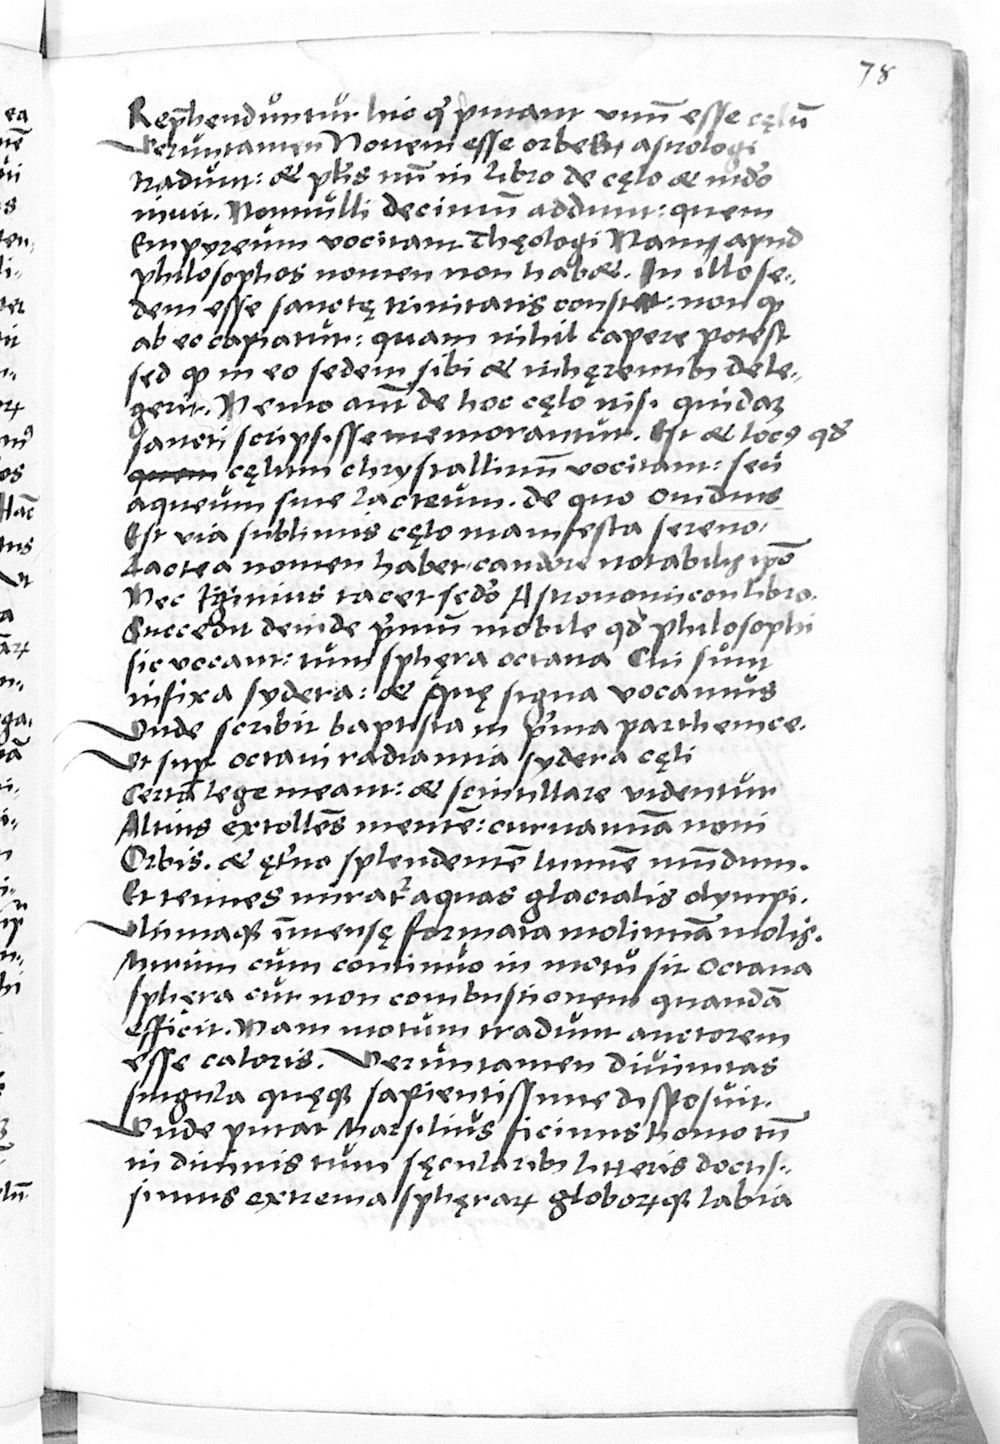 78
Rep̄henduntur hic q̄ putant vnū esse cęlū
Veruntamen Nouem esse orbes astrologi
tradunt: & pl̄is nr̄i in libro de cęlo & mdo
inuit. Nonnulli decimū addunt: quem
Empyreum vocitant Thęologi Nam apud
philosophos nomen non habet. In illo se-
dem esse sanctę trinitatis constat: non q
ab eo capiatur: quam nihil capere potest
sed q in eo sedem sibi & inhęrentib dele-
gerit. Nemo aūt de hoc cęlo nisi quidaʒ
sancti scripsisse memorantur. Est & locꝰ qd
quem cęlum chrystallinū vocitant: seu
aqueum siue lacteum. de quo Ouidius
Est via sublimis cęlo manifesta sereno.
Lactea nomen habet candore notabilis ipō
Nec Iginius tacet sedo Astronomicon libro.
Succedit deinde p̄mū mobile qd philosophi
sic vocant: tum sphęra octaua Cui sunt
infixa sydera: & quę signa vocamus
Vnde scribit baptista in p̄ma parthenice.
Vt sup octaui radiantia sydera cęli
Certa lege meant: & scintillare videntur
Altius extollēs mentē: curuaminā noni
Orbis. & ęt̄no splendentē lumē mūdum.
Et tenues mirat̄ aquas glacialis olympi.
Vltimaq; īmensę formata molimīa molis.
Mirum cum continuo in motu sit octaua
sphęra cur non combustionem quandā
efficit. Nam motum tradunt auctorem
esse caloris. Veruntamen diuinitas
singula quęq; sapientissime disposuit.
Vnde putat Marsilius ficinus homo tū
in diuinis tum sęcularib litteris doctis-
simus extrema sphęraꝝ globoꝝq; labia